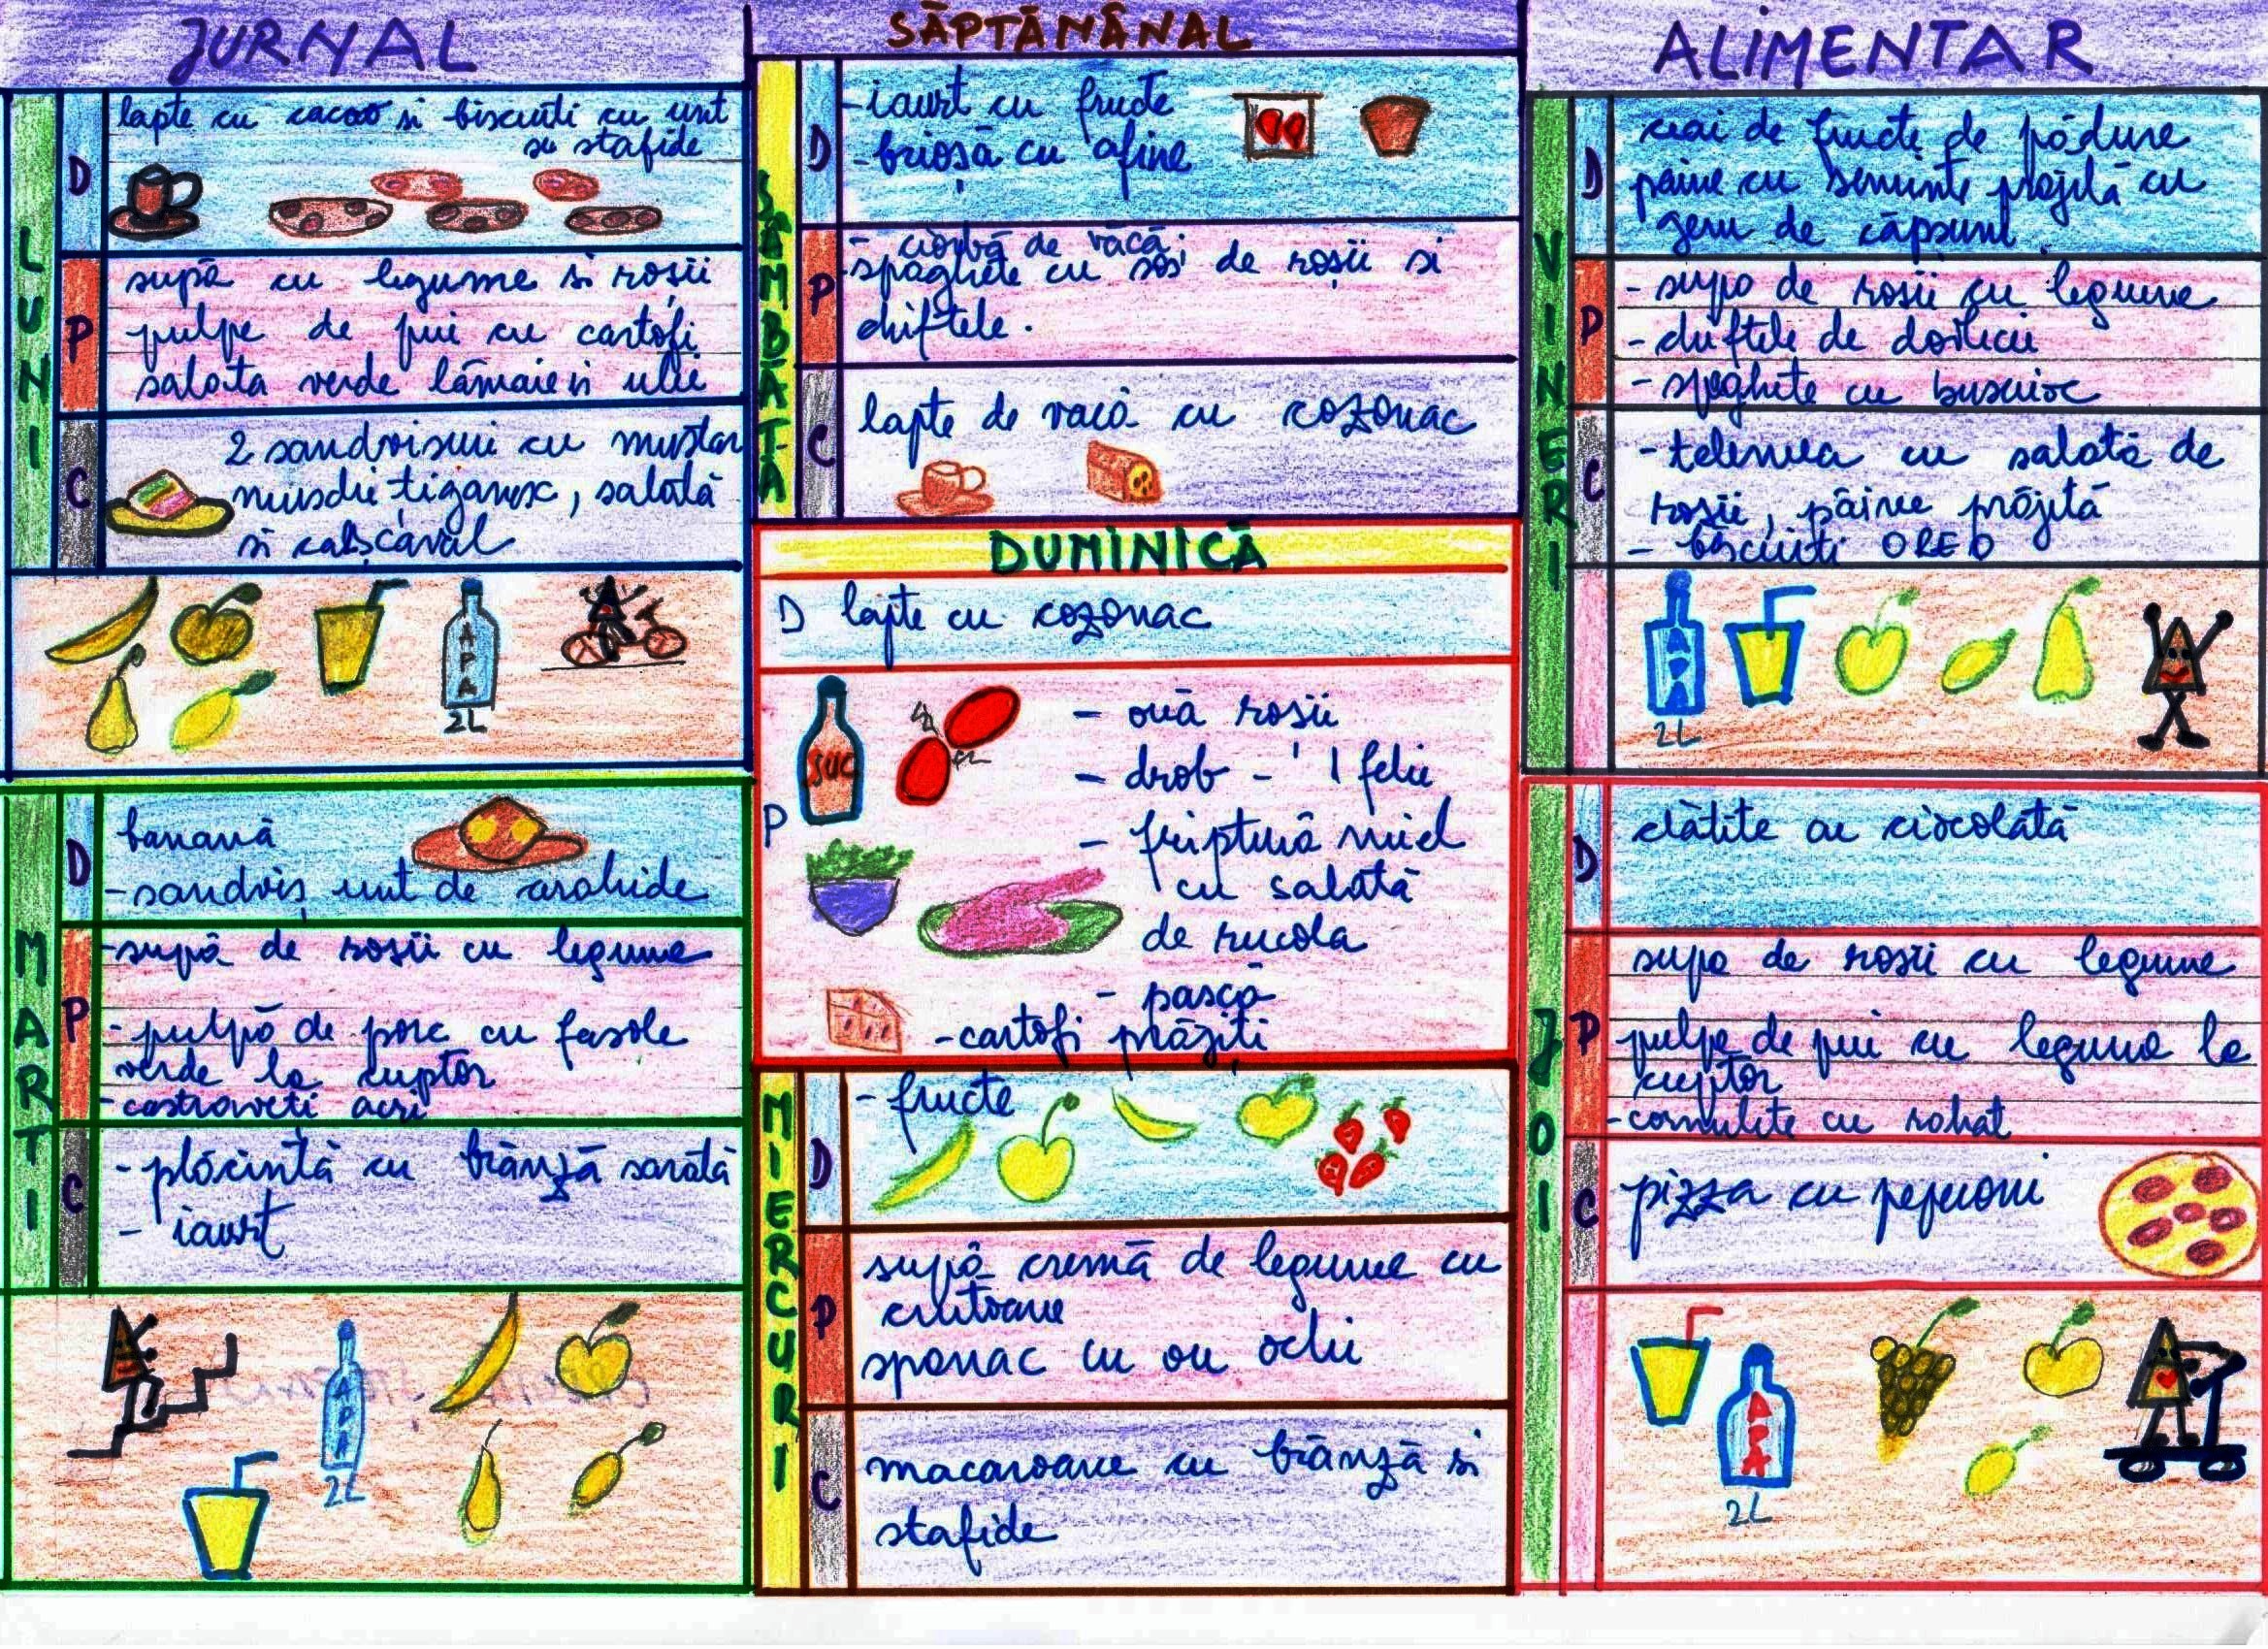 JURNAL
SĂPTĂMÂNAL
ALIMENTAR
LUNI
D
lapte cu cacao si biscuiti cu unt
su stafide
P
supă cu legume si roșii
pulpe de pui cu cartofi
salata verde lămaie si ulei
C
2 sandvisuri cu mustar
muschi țiganesc, salată
si cașcaval
APA
2L
MARTI
D
banană
- sandviș unt de arahide
P
- supă de rosii cu legume
- pulpă de porc cu fasole
verde la cuptor
- castraveti acri
C
- plăcintă cu brânză sarată
- iaurt
APA
2L
SAMBATA
D
- iaurt cu fructe
- brioșă cu afine
P
- ciorbă de văcă.
- spaghete cu sos de roșii si
chiftele.
C
lapte de vacă cu cozonac
DUMINICĂ
D lapte cu cozonac
P
SUC
- ouă roșii
- drob - 1 felie
- friptură miel
cu salată
de rucola
- pască
- cartofi prăjiti
MIERCURI
D
- fructe
P
supă cremă de legume cu
crutoane
spanac cu ou ochi
C
macaroane cu brânză si
stafide
VINERI
D
ceai de fructe de pădure
păine cu seminte prăjită cu
gem de căpsuni
P
- supa de rosii cu legume
- chiftele de dovlecei
- spaghete cu busuioc
C
- telemea cu salată de
rosii, păine prăjită
- biscuiti OREO
APA
2L
JOI
D
clătite cu ciocolată
P
supa de roșii cu legume
pulpe de pui cu legume la
cuptor
- cornulete cu rahat
C
pizza cu peperoni
APA
2L